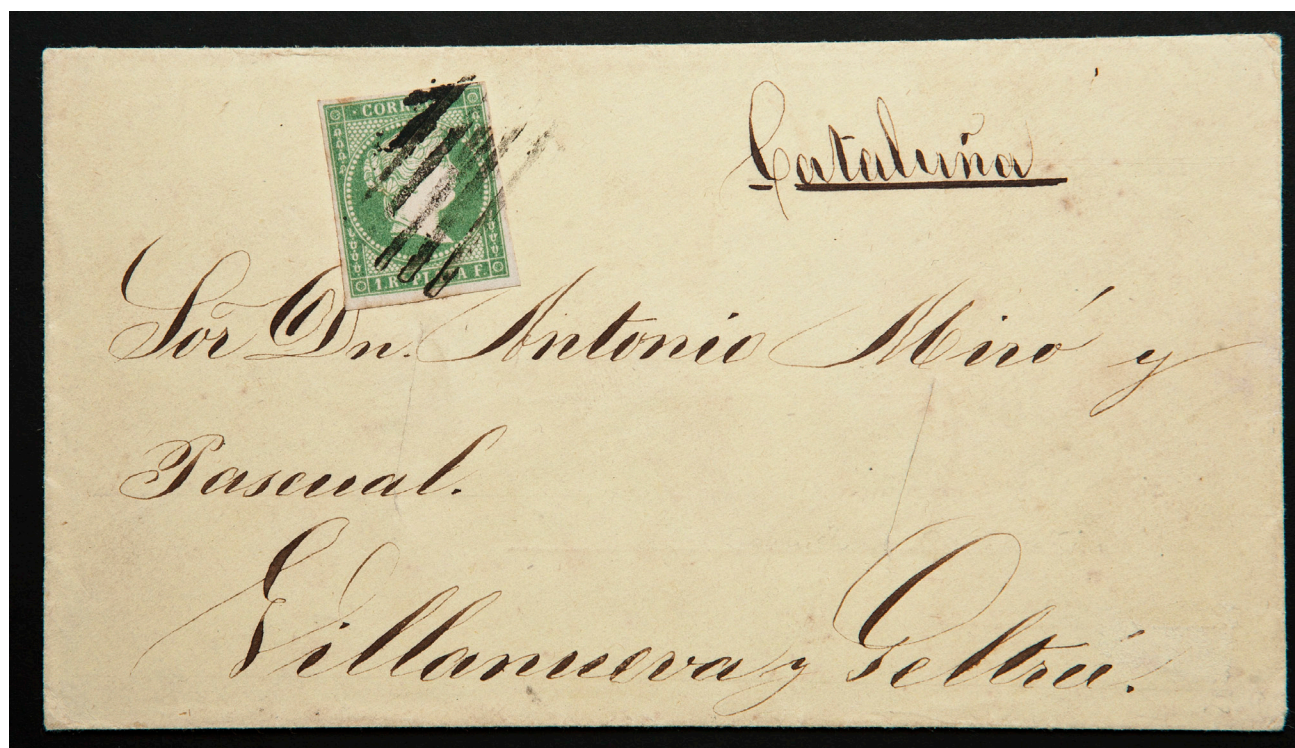 CORR
1. R. PL A F.
Cataluña
Sor Dn. Antonio Miró y
Pascual.
Villanueva y Geltrú.